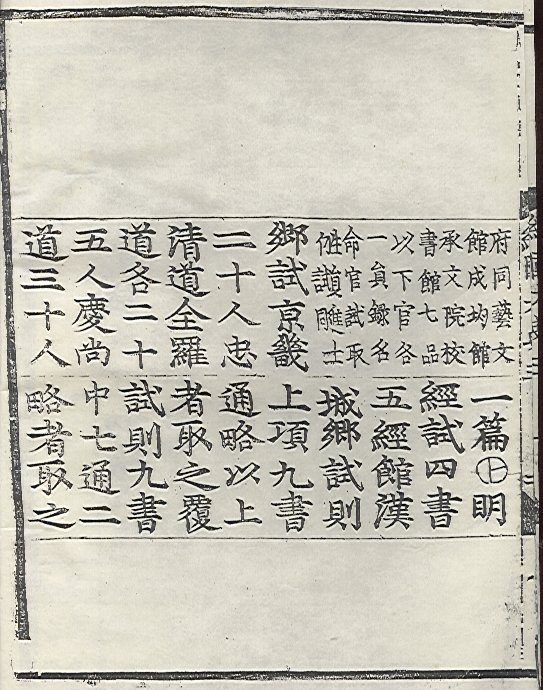 府同藝文
館成均館
承文院校
書館七品
以下官各
一員錄名
命官試取
鄉試京畿
二十人忠
清道全羅
道各二十
五人慶尚
道三十人
一篇㊤明
經試四書
五經館漢
城鄉試則
上項九書
通略以上
者取之覆
試則九書
中七通二
略者取之